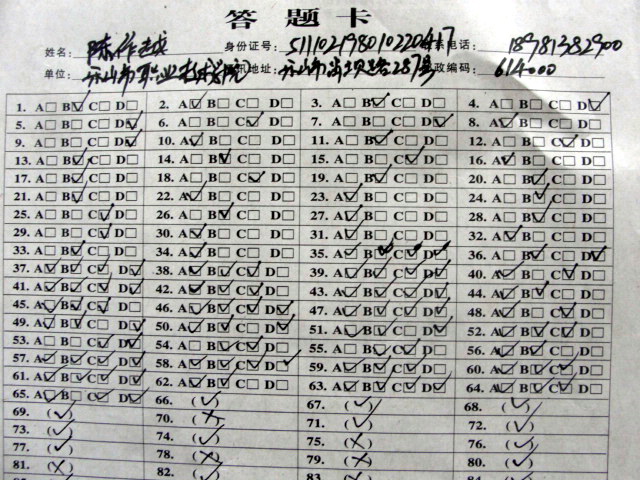 答 题 卡
姓名： 陈作越 身份证号： 511102198010220417 系电话： 18981382900
单位： 乐山市职业技术学院 讯地址： 乐山市 287号 政编码： 614000
1. A□ B☑ C□ D□ 2. A☑ B□ C□ D□ 3. A□ B☑ C□ D□ 4. A□ B□ C□ D☑
5. A□ B□ C□ D☑ 6. A□ B□ C☑ D□ 7. A□ B□ C□ D☑ 8. A☑ B□ C□ D□
9. A□ B□ C□ D☑ 10. A☑ B□ C□ D□ 11. A□ B☑ C□ D□ 12. A□ B□ C☑ D□
13. A□ B☑ C□ D□ 14. A□ B☑ C□ D□ 15. A□ B□ C☑ D□ 16. A☑ B□ C□ D□
17. A□ B☑ C□ D□ 18. A□ B□ C☑ D□ 19. A□ B☑ C□ D□ 20. A□ B☑ C□ D□
21. A□ B☑ C□ D□ 22. A☑ B□ C□ D□ 23. A☑ B□ C□ D□ 24. A□ B☑ C□ D□
25. A□ B□ C☑ D□ 26. A□ B☑ C□ D□ 27. A☑ B□ C□ D□ 28. A□ B☑ C□ D□
29. A□ B□ C☑ D□ 30. A☑ B□ C□ D□ 31. A☑ B□ C□ D□ 32. A☑ B□ C□ D□
33. A□ B☑ C□ D□ 34. A☑ B□ C□ D□ 35. A☑ B☑ C☑ D☑ 36. A□ B☑ C□ D☑
37. A☑ B☑ C☑ D☑ 38. A☑ B☑ C☑ D□ 39. A☑ B☑ C☑ D☑ 40. A☑ B□ C☑ D□
41. A☑ B☑ C☑ D☑ 42. A☑ B☑ C☑ D□ 43. A☑ B☑ C☑ D☑ 44. A☑ B☑ C□ D□
45. A☑ B☑ C☑ D□ 46. A☑ B☑ C☑ D☑ 47. A☑ B☑ C☑ D☑ 48. A☑ B□ C☑ D□
49. A☑ B☑ C□ D☑ 50. A☑ B☑ C☑ D☑ 51. A☑ B☑ C□ D☑ 52. A☑ B☑ C☑ D☑
53. A□ B□ C☑ D☑ 54. A☑ B☑ C☑ D□ 55. A□ B☑ C☑ D□ 56. A☑ B☑ C□ D□
57. A☑ B☑ C☑ D☑ 58. A☑ B☑ C☑ D☑ 59. A☑ B☑ C☑ D□ 60. A☑ B☑ C☑ D□
61. A☑ B☑ C☑ D☑ 62. A☑ B☑ C□ D□ 63. A☑ B☑ C☑ D☑ 64. A☑ B☑ C☑ D□
65. A☑ B□ C☑ D☑ 66. (✓) 67. (✓) 68. (✓)
69. (✓) 70. (×) 71. (✓) 72. (✓)
73. (✓) 74. (✓) 75. (×) 76. (✓)
77. (✓) 78. (×) 79. (×) 80. (✓)
81. (×) 82. (✓) 83 84